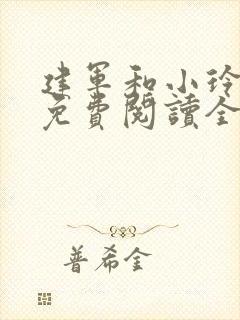 建軍和小玲
免費閱讀全
普希金